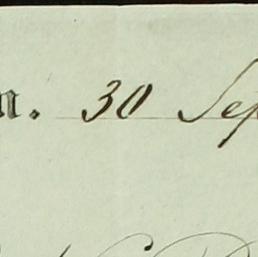 n. 30 Sep